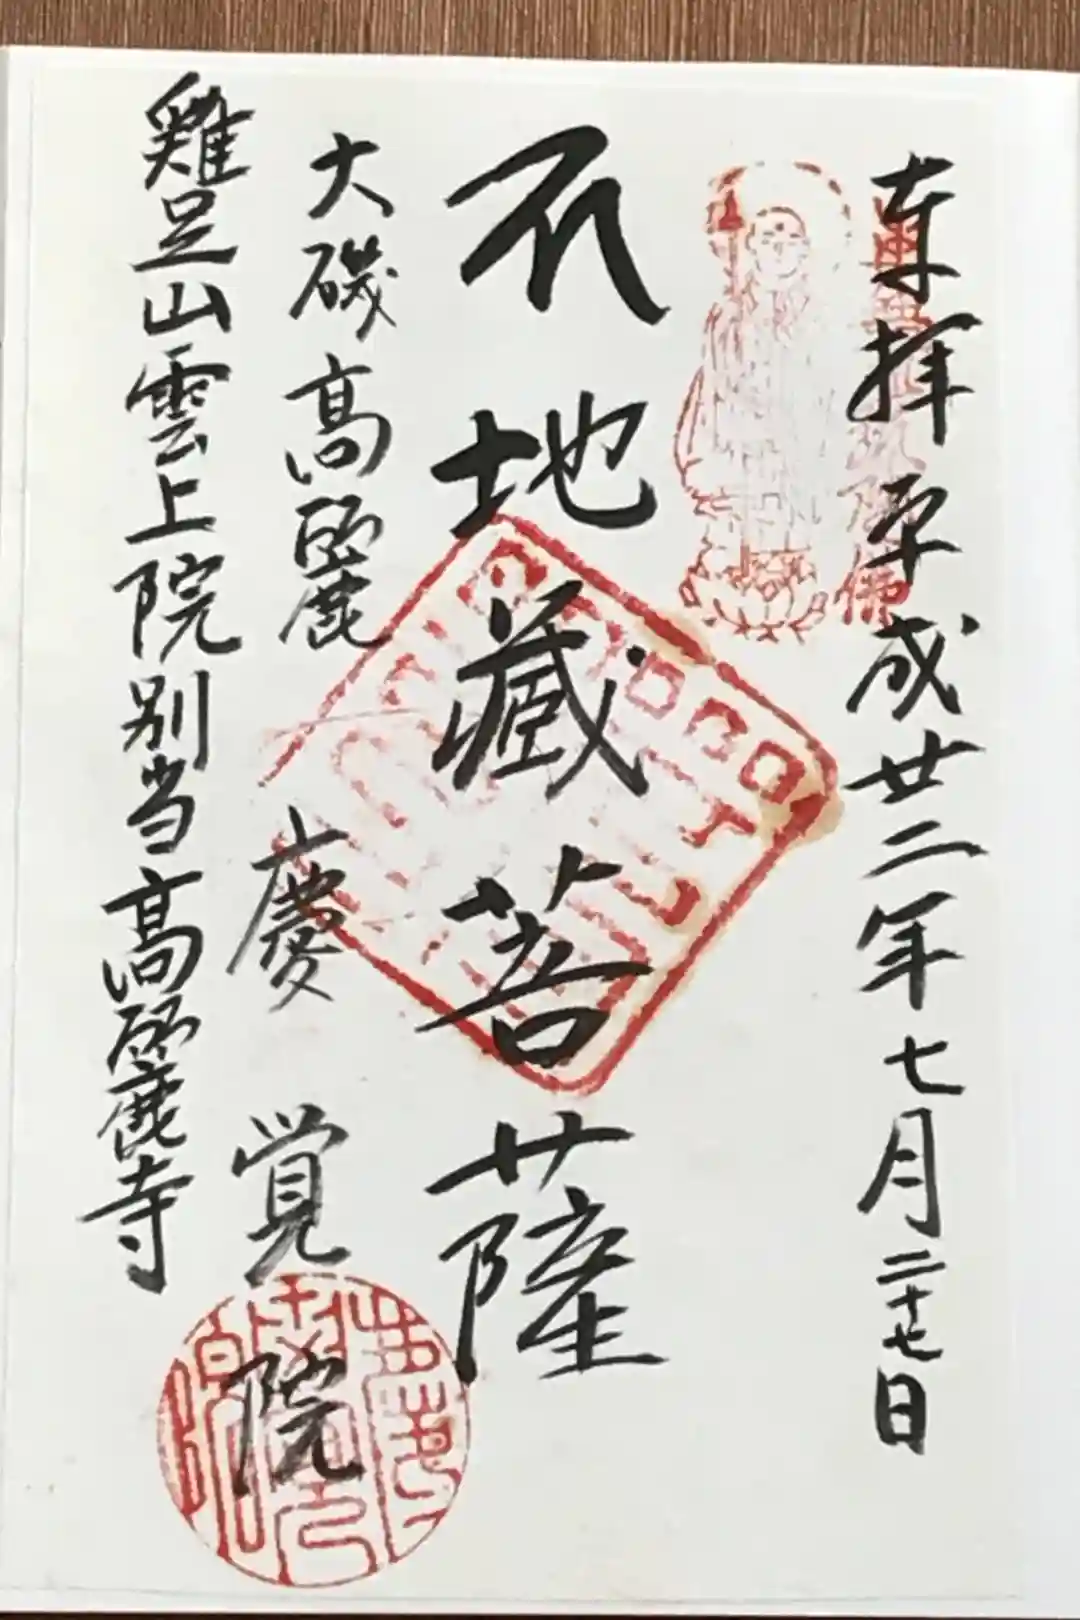 奉拝 平成廿二年七月二十七日
地藏菩薩
大磯高麗
慶覚院
雞足山雲上院別当高麗寺